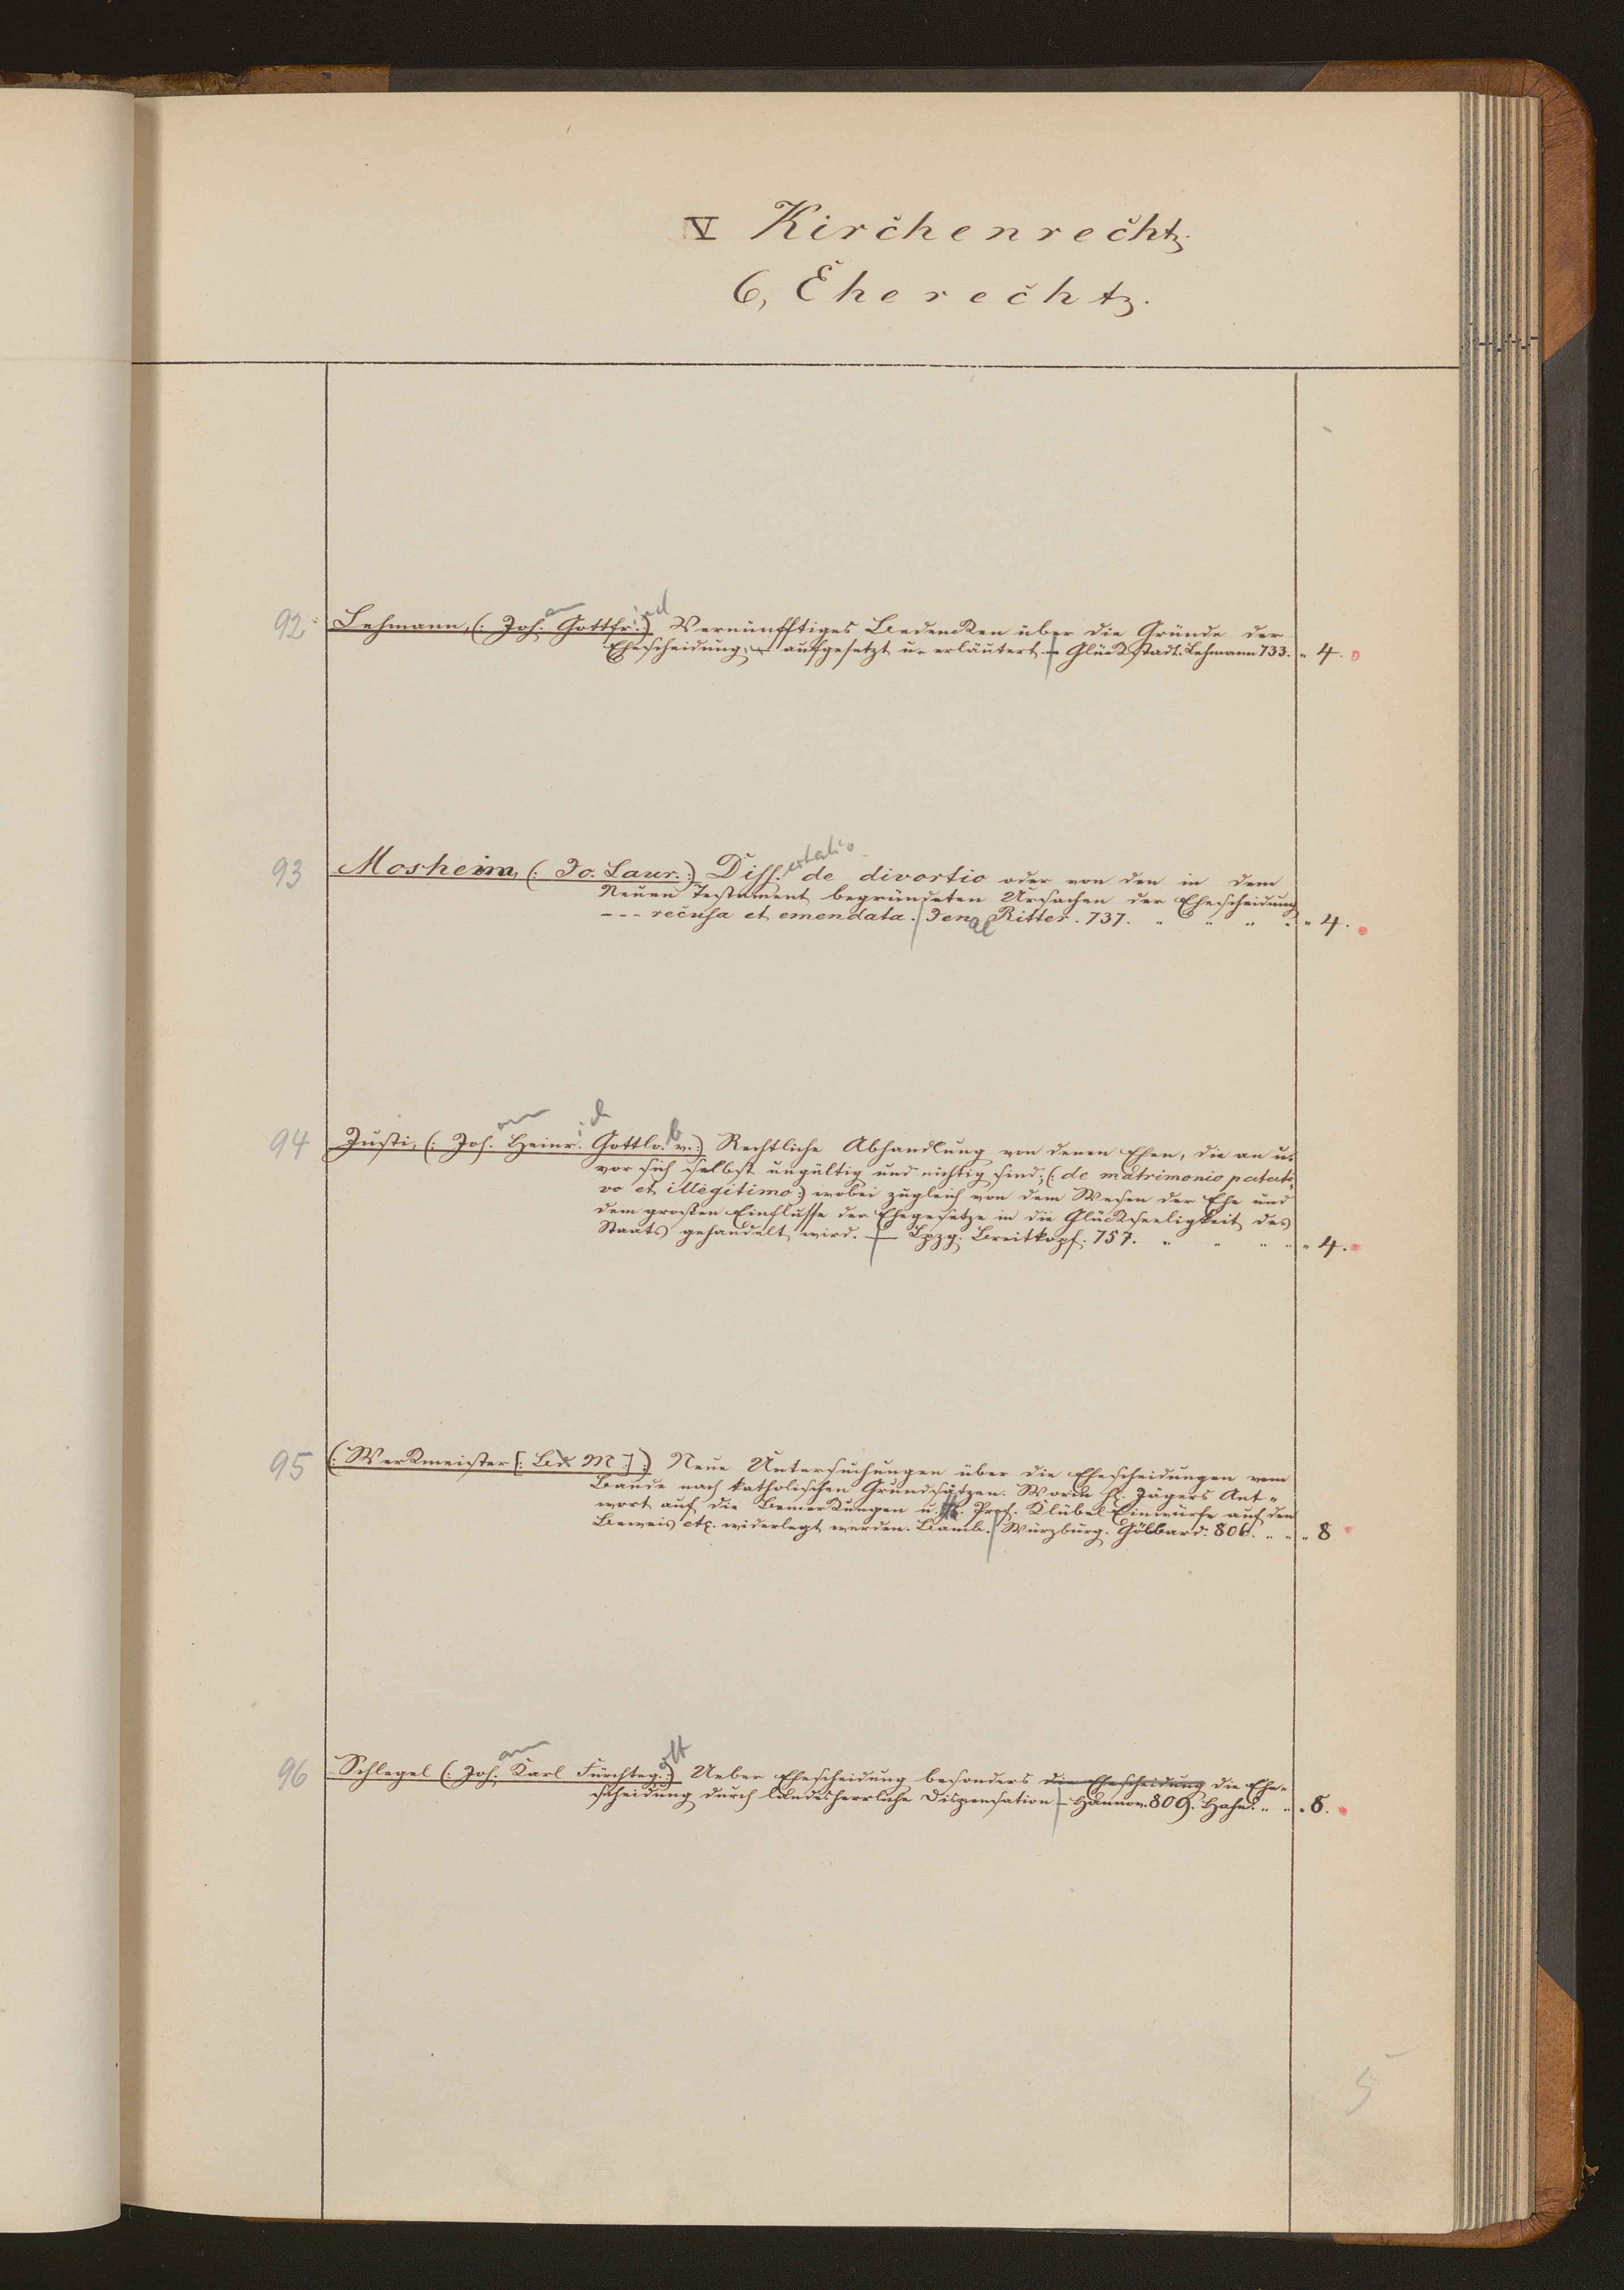 V Kirchenrecht
6, Eherecht.
92. Lehmann, (: Joh.ann Gottfr.ied :) Vernünfftiges Bedencken über die Gründe der
Ehescheidung, – aufgesetzt u. erläutert. – Glückstadt. Lehmann 733. „ 4.
93 Mosheim, (: Jo. Laur. :) Diss.ertatio de divortio oder von den in dem
Neuen Testament begründeten Ursachen der Ehescheidung
- - - recusa et emendata. Jenae Ritter. 737. „ „ „ „ „ 4.
94 Justi, (: Joh.ann Heinr.ich Gottlo.b v. :) Rechtliche Abhandlung von denen Ehen, die an u.
vor sich selbst ungültig und nichtig sind; (: de matrimonio putati-
vo et illegitimo :) wobei zugleich von dem Wesen der Ehe und
dem großen Einflusse der Ehegesetze in die Glückseeligkeit des
Staats gehandelt wird. – Lpzg. Breitkopf. 757. „ „ „ „ „ 4.
95 (: Werkmeister [: B. M :] :) Neue Untersuchungen über die Ehescheidungen vom
Bande nach katholischen Grundsätzen. Worin H. Jägers Ant-
wort auf die Bemerkungen u. H. Prof. Klübel Einwürfe auf den
Beweis etc. widerlegt werden. Bamb. Würzburg. Göbhard. 806. „ „ „ 8
96 Schlegel (: Joh.ann Karl Fürchteg.ott :) Ueber Ehescheidung besonders die Ehescheidung die Ehe-
scheidung durch landesherrliche Dispensation – Hannov. 809. Hahn. „ „ „ 8.
5